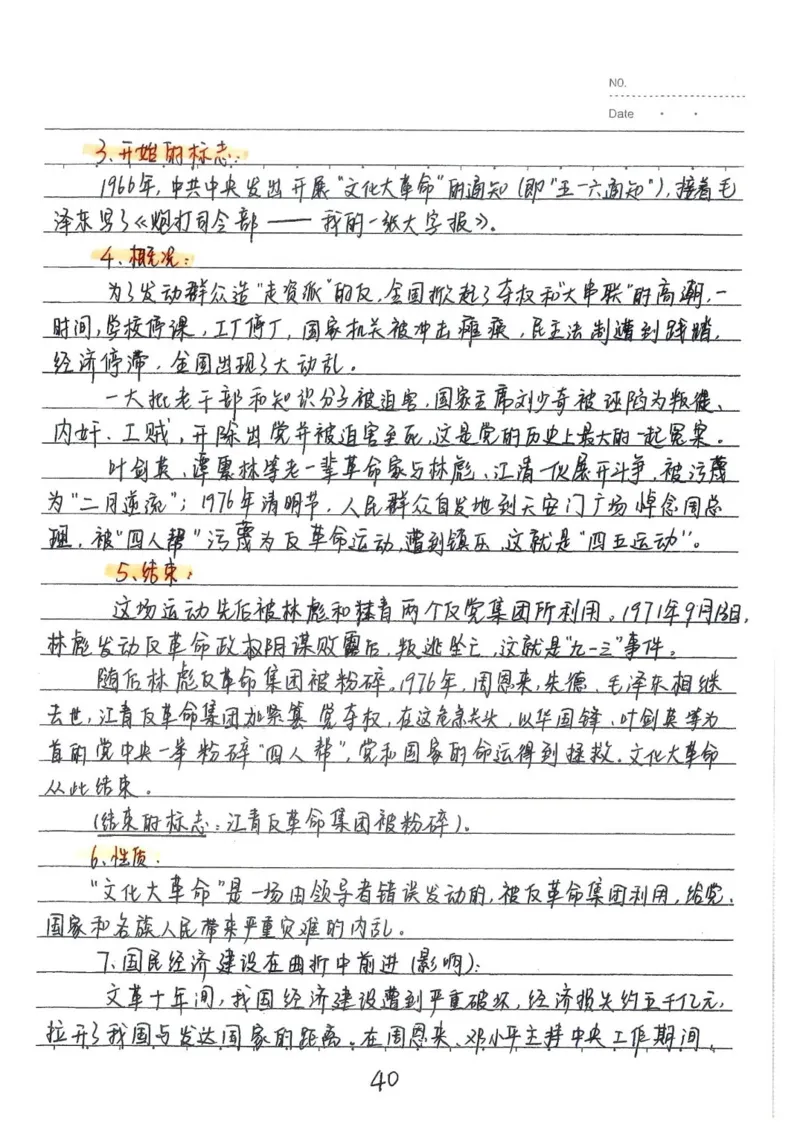 NO.
Date
3、开始的标志:
1966年,中共中央发出开展"文化大革命"的通知(即"五一六通知"),接着毛
泽东写了《炮打司令部——我的一张大字报》。
4、概况:
为了发动群众造"走资派"的反,全国掀起了夺权和"大串联"的高潮,一
时间,学校停课,工厂停工,国家机关被冲击瘫痪,民主法制遭到践踏,
经济停滞,全国出现了大动乱。
一大批老干部和知识分子被迫害,国家主席刘少奇被诬陷为叛徒、
内奸、工贼,开除出党并被迫害至死,这是党的历史上最大的一起冤案。
叶剑英、谭震林等老一辈革命家与林彪、江清一伙展开斗争,被污蔑
为"二月逆流";1976年清明节,人民群众自发地到天安门广场悼念周总
理,被"四人帮"污蔑为反革命运动,遭到镇压,这就是"四五运动"。
5、结束:
这场运动先后被林彪和江青两个反党集团所利用。1971年9月13日,
林彪发动反革命政权阴谋败露后,叛逃坠亡,这就是"九一三"事件。
随后林彪反革命集团被粉碎。1976年,周恩来,朱德、毛泽东相继
去世,江青反革命集团加紧篡党夺权,在这危急关头,以华国锋、叶剑英等为
首的党中央一举粉碎"四人帮",党和国家的命运得到拯救。文化大革命
从此结束。
(结束的标志:江青反革命集团被粉碎)。
6、性质.
"文化大革命"是一场由领导者错误发动的,被反革命集团利用,给党、
国家和各族人民带来严重灾难的内乱。
7、国民经济建设在曲折中前进(影响):
文革十年间,我国经济建设遭到严重破坏,经济损失约五千亿元,
拉开了我国与发达国家的距离。在周恩来、邓小平主持中央工作期间,
40